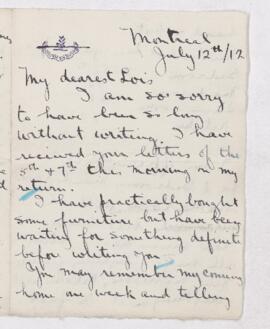 Montreal
July 12th/12
My dearest Lois
I am so sorry
to have been so long
without writing. I have
received your letters of the
5th & 7th this morning on my
return.
I have practically bought
some furniture but have been
waiting for something definite
before writing you
You may remember my coming
home one week and telling